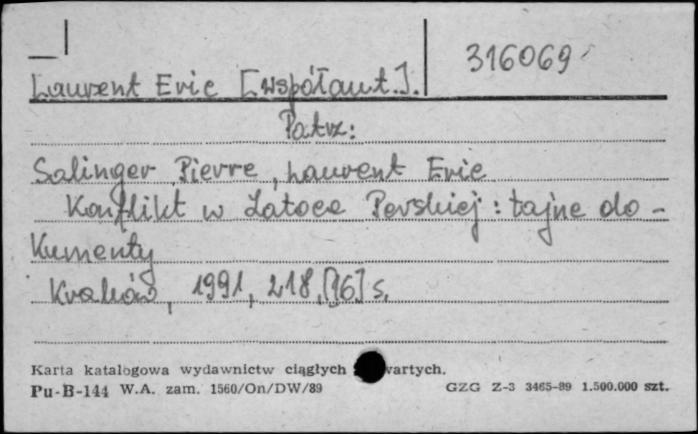 316069
Laurent Eric [współaut.].
Patrz:
Salinger Pierre, Laurent Eric
Konflikt w Zatoce Perskiej : tajne do-
kumenty
Kraków, 1991, 218, [16] s.
Karta katalogowa wydawnictw ciągłych wartych.
Pu-B-144 W.A. zam. 1560/On/DW/89 GZG Z-3 3465-89 1.500.000 szt.